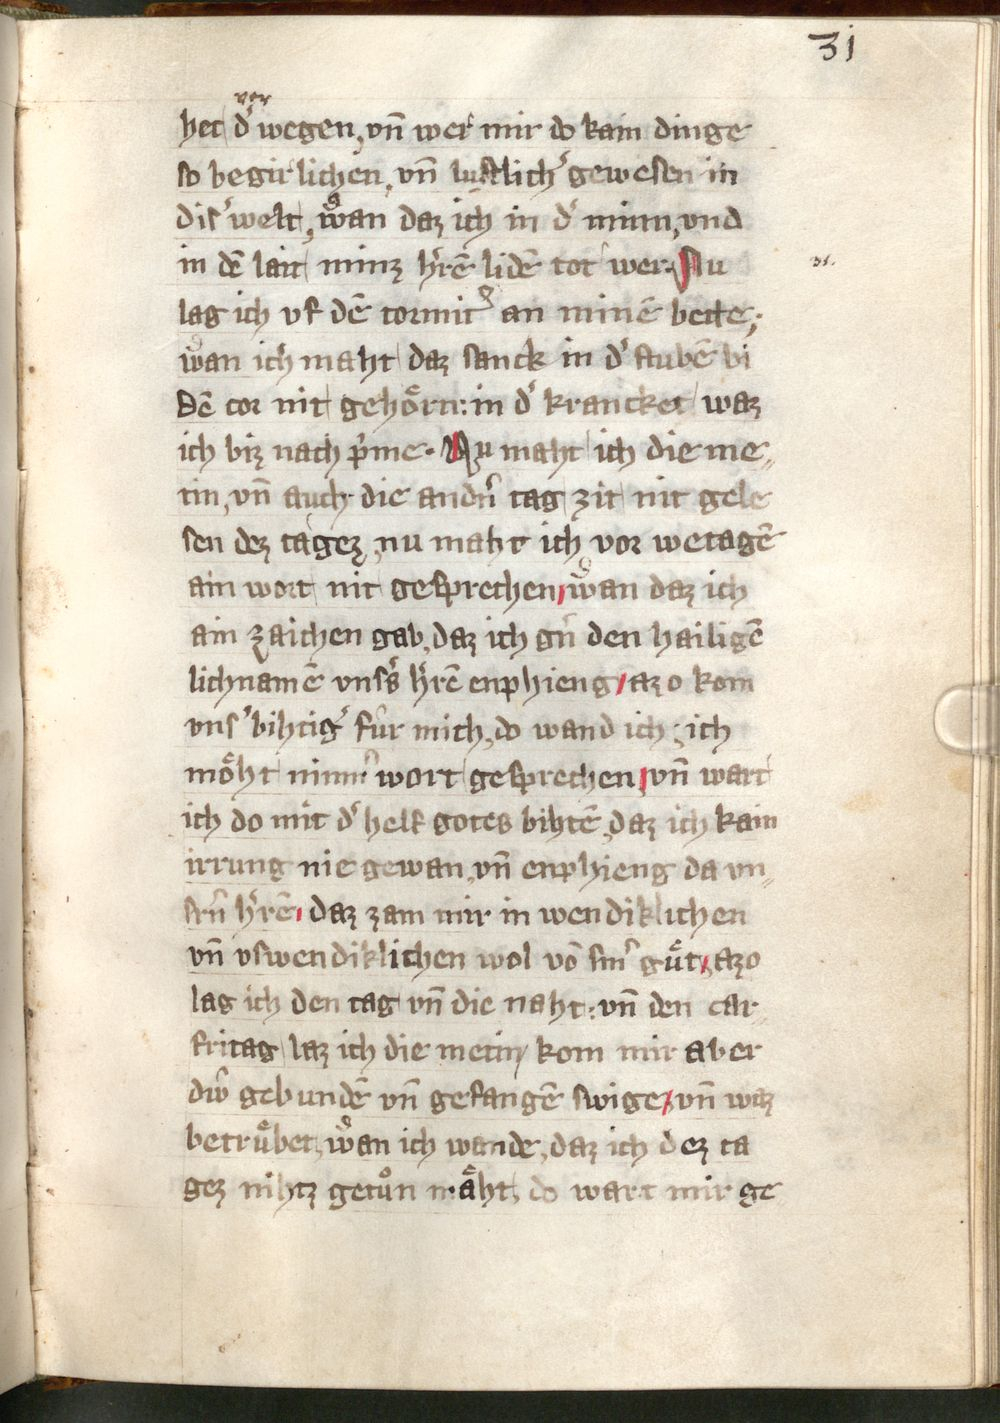 31
ver
het dˀ wegen, vn̄ wer mir do kain dinge
so begirlichen, vn̄ lustlichˀ gewesen in
disˀ welt, wan daz ich in dˀ minn, vnd
in dē lait minz hˀrē lidē tot wer. Nu
31.
lag ich vf dē tormitˀ an minē bette;
wan ich maht daz sanck in dˀ stubē bi
dē cor nit gehörn: in dˀ krancket waz
ich biz nach pˀme. Nu maht ich die me„
tin, vn̄ auch die andˀn tag zit nit gele
sen dez tagez, nu maht ich vor wetagē
ain wort nit gesprechen, wan daz ich
ain zaichen gab, daz ich gˀn den hailigē
lichnamē vnsˀs hˀrē enphieng, azo kom
vnsˀ bihtigˀ für mich, do wand ich, ich
möht nimmˀ wort gesprechen, vn̄ wart
ich do mit dˀ helf gotes bihtē, daz ich kain
irrung nie gewan, vn̄ enphieng da vn„
sˀn hˀrē, daz zam mir in wendiklichen
vn̄ vswendiklichen wol vō sinˀ güt, azo
lag ich den tag vn̄ die naht: vn̄ den car
fritag laz ich die metin, kom mir aber
diu gebundē vn̄ gefangē swige, vn̄ waz
betrübet, wan ich wande, daz ich dez ta
gez nihtz getuͦn mäht, do wart mir ge